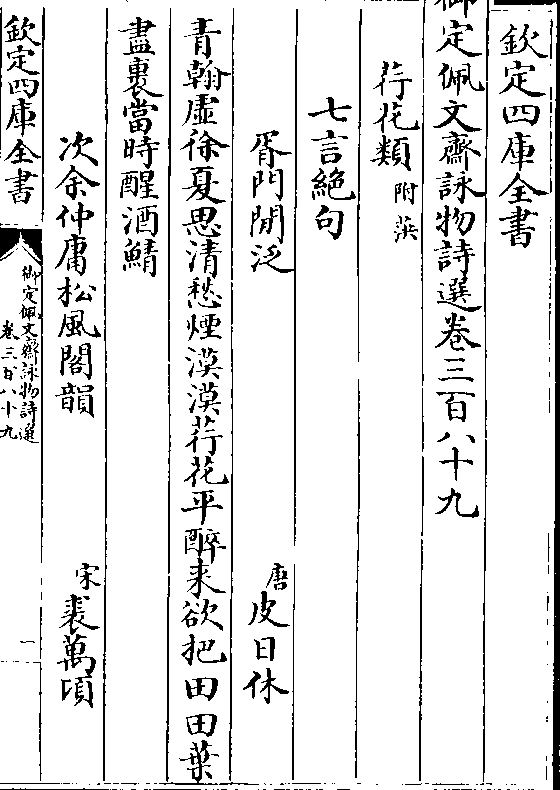 欽定四庫全書
御定佩文齋詠物詩選卷三百八十九
荇花類附葓
七言絶句
胥門閒泛 唐皮日休
青翰虛徐夏思清愁煙漠漠荇花平醉来欲把田田葉
盡裹當時醒酒鯖
次余仲庸松風閣韻 宋裘萬頃
欽定四庫全書
御定佩文齋詠物詩選
卷三百八十九
一